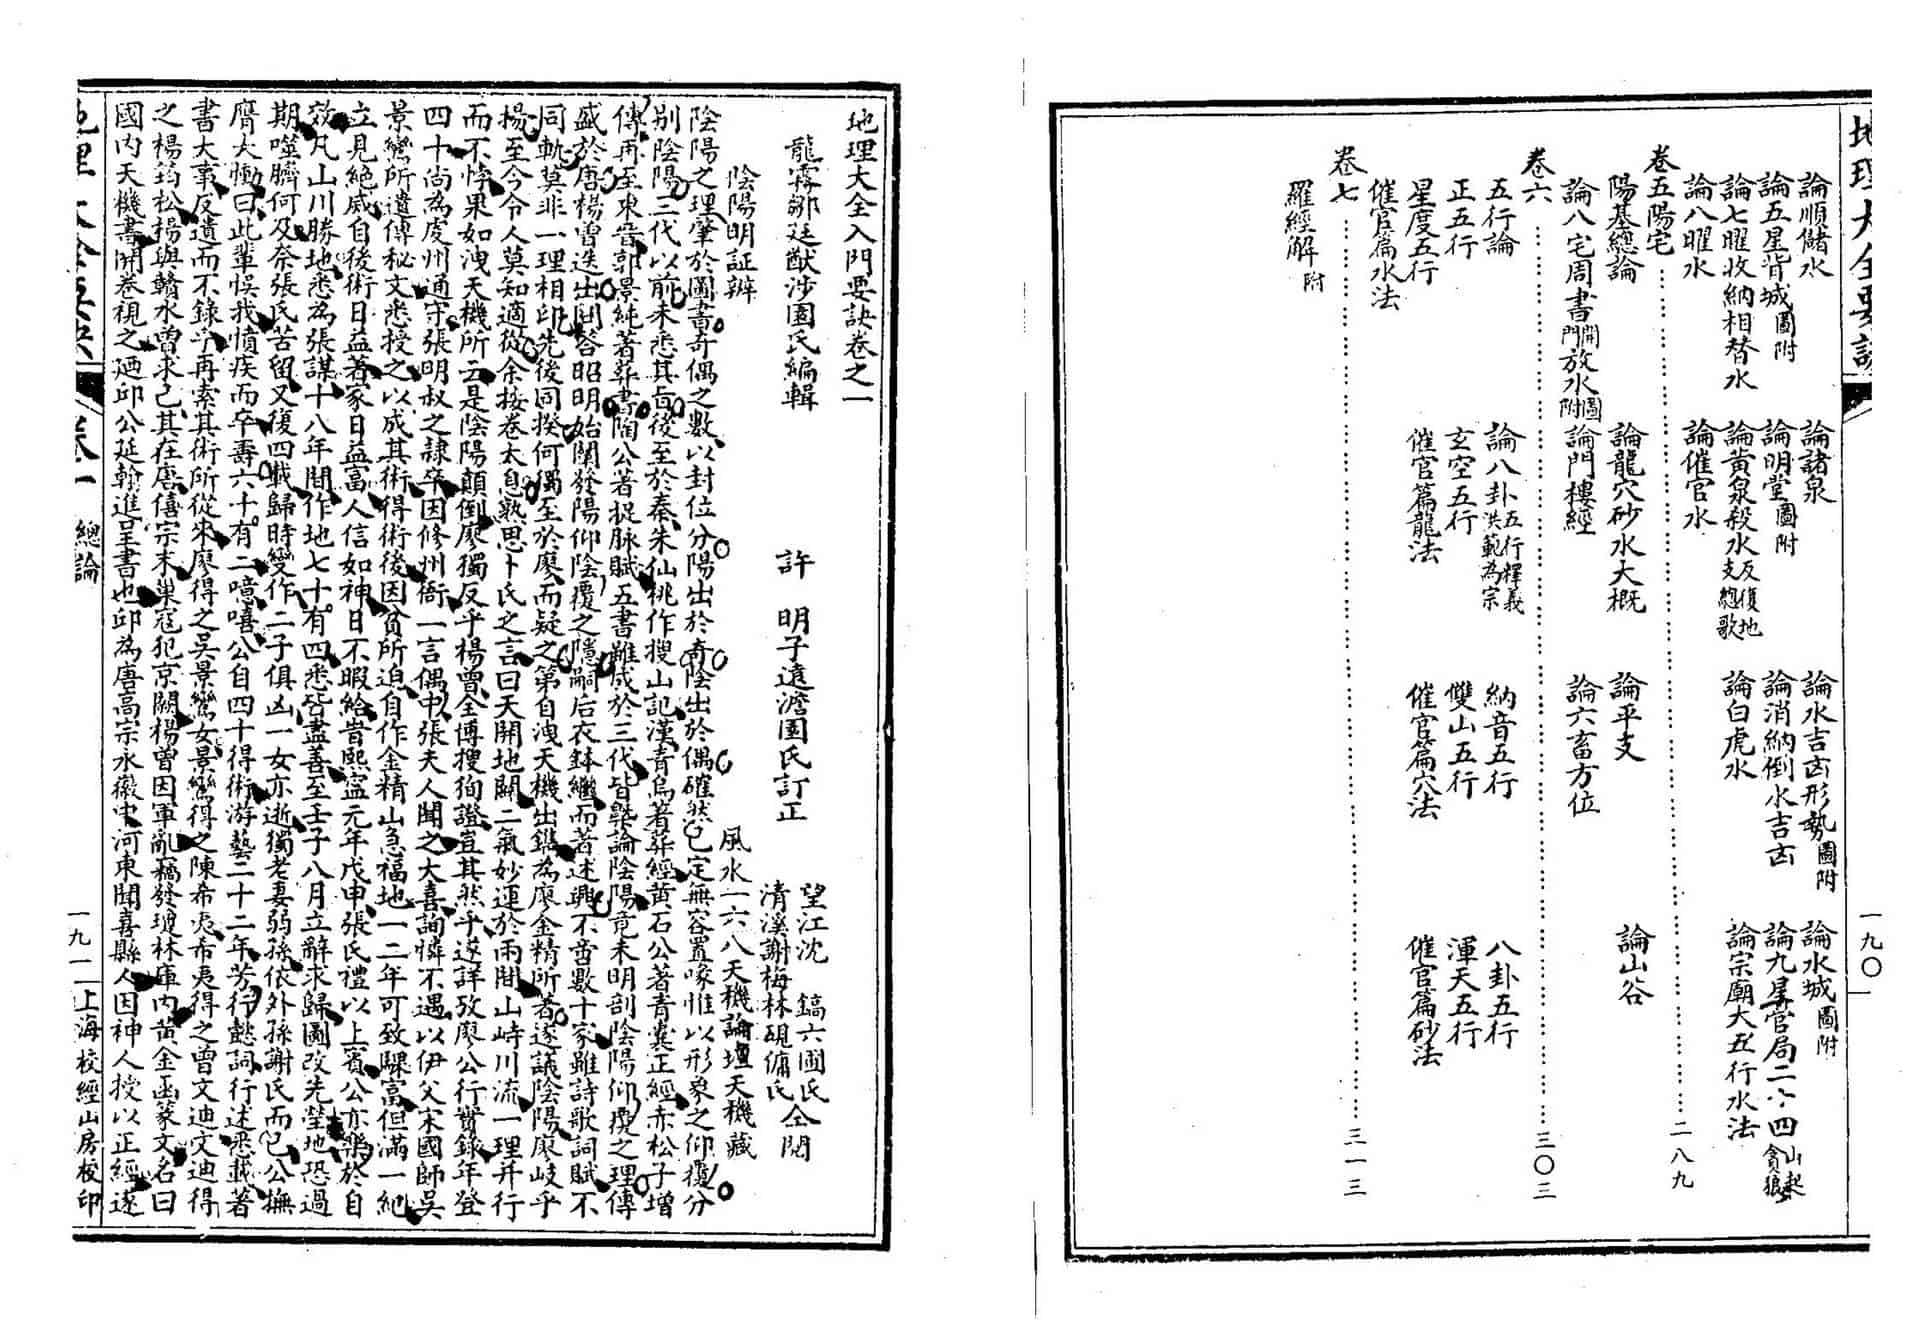 地理大全要訣
一九〇
論順儲水　論諸泉　論水吉凶形勢圖附　論水城圖附
論五星背城圖附　論明堂圖附　論消納倒水吉凶　論九星官局二十四山起貪狼
論七曜收納相替水　論黃泉殺水反復地支總歌　論白虎水　論宗廟大五行水法
論八曜水　論催官水
卷五陽宅……二八九
陽基總論　論龍穴砂水大概　論平支　論山谷
論八宅周書開門放水圖附　論門樓經　論六畜方位
卷六……三〇三
五行論　論八卦五行釋義洪範為宗　納音五行　八卦五行
正五行　玄空五行　雙山五行　渾天五行
星度五行　催官篇龍法　催官篇穴法　催官篇砂法
催官篇水法
卷七……三一三
羅經解附
地理大全入門要訣卷之一
望江沈　鎬六圃氏
龍霧鄒廷猷涉園氏編輯　許　明子遠澹園氏訂正　仝閱
清溪謝梅林硯傭氏
陰陽明証辨　風水一六八天機論壇天機藏
陰陽之理肇於圖書奇偶之數以封位分陽出於奇陰出於偶確然已定無容置喙惟以形象之仰覆分
別陰陽三代以前未悉其旨後至於秦朱仙桃作搜山記漢青烏著葬經黃石公著青囊正經赤松子增
傳再至東晉郭景純著葬書陶公著捉脉賦五書雖成於三代皆槩論陰陽竟未明剖陰陽仰覆之理傳
盛於唐楊曾迭出問答昭明始闡發陽仰陰覆之隱嗣后衣鉢繼而著述興不啻數十家雖詩歌詞賦不
同軌莫非一理相印先後同揆何獨至於廖而疑之第自洩天機出鐫為廖金精所著遂議陰陽廖岐乎
楊至今令人莫知適從余按卷太息熟思卜氏之言曰天開地闢二氣妙運於兩間山峙川流一理并行
而不悖果如洩天機所云是陰陽顛倒廖獨反乎楊曾全傳搜狥證豈其然乎遂詳攷廖公行實錄年登
四十尚為虔州通守張明叔之隷卒因修州衙一言偶中張夫人聞之大喜詢憐不遇以伊父宋國師吳
景鸞所遺傳秘文悉授之以成其術得術後因貧所迫自作金精山急福地一二年可致驟富但滿一紀
立見絕咸自後術日益著家日益富人信如神日不暇給昔熙寧元年戊申張氏禮以上賓公亦樂於自
效凡山川勝地悉為張謀十八年間作地七十有四悉皆盡善至壬子八月立辭求歸圖改先塋地恐過
期噬臍何及奈張氏苦留又復四載歸時變作二子俱凶一女亦逝獨老妻弱孫依外孫謝氏而已公撫
膺大慟曰此輩悞我憤疾而卒壽六十有二噫嘻公自四十得術游藝二十二年芳行懿詞行述悉載著
書大事反遺而不錄乎再索其術所從來廖得之吳景鸞女景鸞得之陳希夷希夷得之曾文迪文迪得
之楊筠松楊與贛水曾求己其在唐僖宗末巢寇犯京闕楊曾因軍亂竊發瓊林庫內黃金函篆文名曰
國內天機書開卷視之廼邱公延翰進呈書也邱為唐高宗永徽中河東聞喜縣人因神人授以正經遂
卷一　總論
一九一
上海校經山房校印